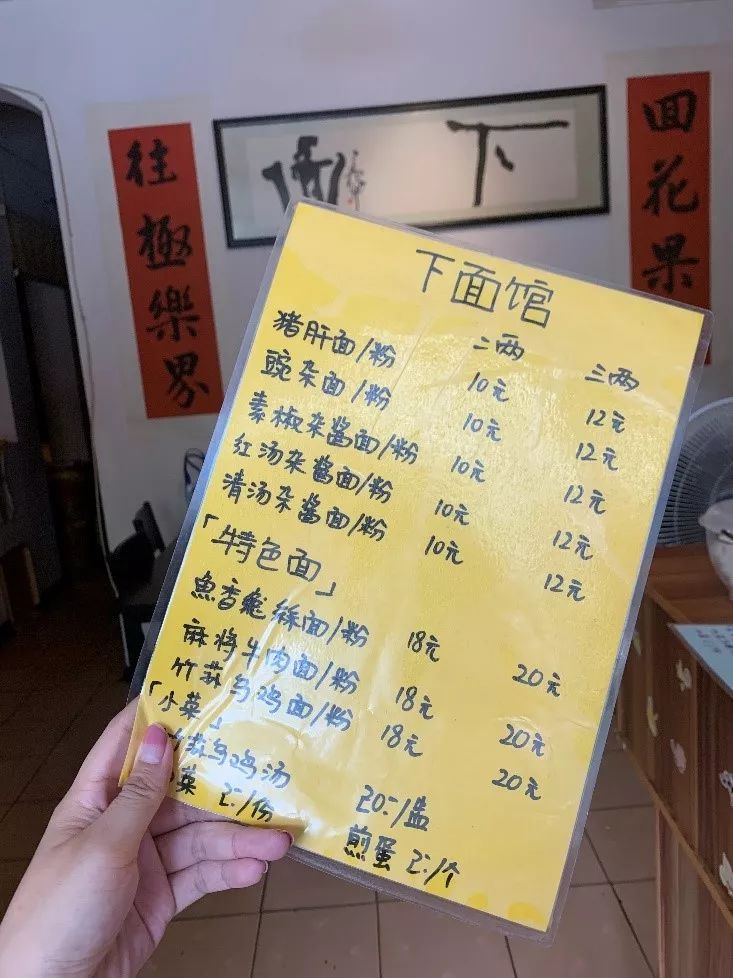 往極樂界
下面
回花果
下面馆
二两 三两
猪肝面/粉 10元 12元
豌杂面/粉 10元 12元
素椒杂酱面/粉 10元 12元
红汤杂酱面/粉 10元 12元
清汤杂酱面/粉 10元 12元
「特色面」
魚香 絲面/粉 18元 20元
麻将牛肉面/粉 18元 20元
竹荪乌鸡面/粉 18元 20元
「小菜」
荪乌鸡汤 20:/盅
菜 2:/份 煎蛋 2:/个